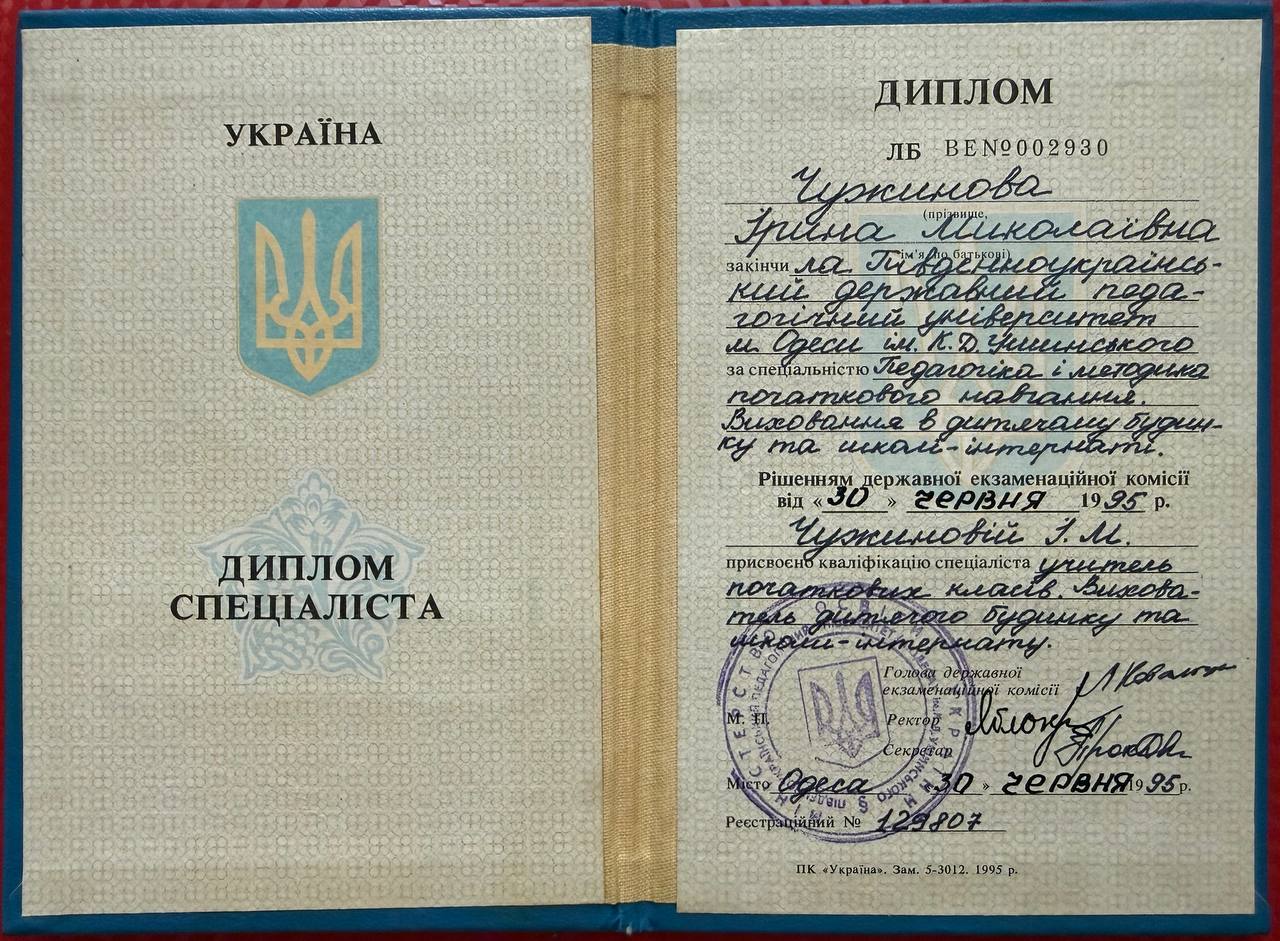 УКРАЇНА
ДИПЛОМ
СПЕЦІАЛІСТА
ДИПЛОМ
ЛБ ВЕ№002930
Чужинова
(прізвище,
Ірина Миколаївна
ім'я, по батькові)
закінчила Південноукраїнсь-
кий державний педа-
гогічний університет
м. Одеси ім. К.Д.Ушинського
за спеціальністю Педагогіка і методика
початкового навчання.
Виховання в дитячому будин-
ку та школі-інтернаті.
Рішенням державної екзаменаційної комісії
від «30» червня 1995 р.
Чужиновій І.М.
присвоєно кваліфікацію спеціаліста учитель
початкових класів. Вихова-
тель дитячого будинку та
школи-інтернату.
Голова державної
екзаменаційної комісії
М. П.
Ректор
Секретар
Місто Одеса «30» червня 1995 р.
Реєстраційний № 129807
ПК «Україна». Зам. 5-3012. 1995 р.